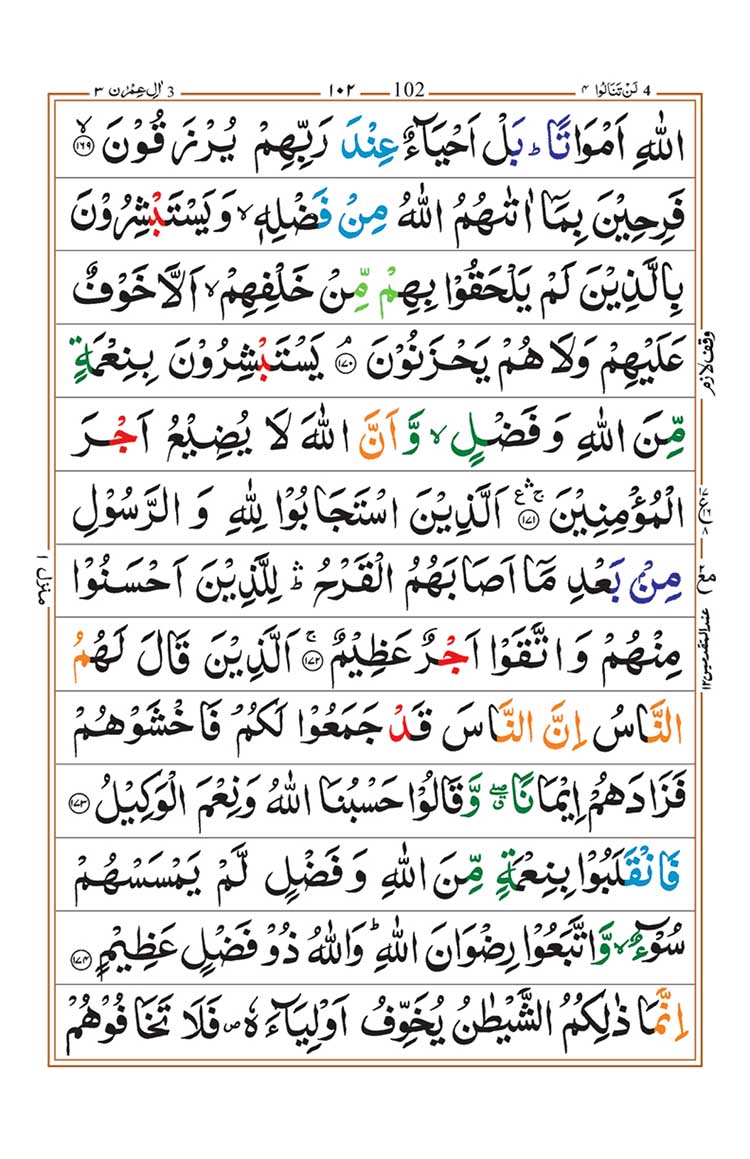 3 اٰلِ عِمْرٰن ٣ ١٠٢ 102 4 لَنْ تَنَالُوا ٤
اللّٰهِ اَمْوَاتًا ؕ بَلْ اَحْيَآءٌ عِنْدَ رَبِّهِمْ يُرْزَقُوْنَ ۙ‏﴿۱۶۹﴾
فَرِحِيْنَ بِمَاۤ اٰتٰٮهُمُ اللّٰهُ مِنْ فَضْلِهٖ ۙ وَيَسْتَبْشِرُوْنَ
بِالَّذِيْنَ لَمْ يَلْحَقُوْا بِهِمْ مِّنْ خَلْفِهِمْ ۙ اَلَّا خَوْفٌ
عَلَيْهِمْ وَلَا هُمْ يَحْزَنُوْنَ ۘ‏﴿۱۷۰﴾ يَسْتَبْشِرُوْنَ بِنِعْمَةٍ
مِّنَ اللّٰهِ وَفَضْلٍ ۙ وَّاَنَّ اللّٰهَ لَا يُضِيْعُ اَجْرَ
الْمُؤْمِنِيْنَ ‏﴿۱۷۱﴾ ۛۚ ع اَلَّذِيْنَ اسْتَجَابُوْا لِلّٰهِ وَالرَّسُوْلِ
مِنْۢ بَعْدِ مَاۤ اَصَابَهُمُ الْقَرْحُ ؕۛ لِلَّذِيْنَ اَحْسَنُوْا
مِنْهُمْ وَاتَّقَوْا اَجْرٌ عَظِيْمٌ ۚ‏﴿۱۷۲﴾ اَلَّذِيْنَ قَالَ لَهُمُ
النَّاسُ اِنَّ النَّاسَ قَدْ جَمَعُوْا لَكُمْ فَاخْشَوْهُمْ
فَزَادَهُمْ اِيْمَانًا ۖۗ وَّقَالُوْا حَسْبُنَا اللّٰهُ وَنِعْمَ الْوَكِيْلُ ‏﴿۱۷۳﴾
فَانْقَلَبُوْا بِنِعْمَةٍ مِّنَ اللّٰهِ وَفَضْلٍ لَّمْ يَمْسَسْهُمْ
سُوْٓءٌ ۙ وَّاتَّبَعُوْا رِضْوَانَ اللّٰهِ ؕ وَاللّٰهُ ذُوْ فَضْلٍ عَظِيْمٍ ‏﴿۱۷۴﴾
اِنَّمَا ذٰلِكُمُ الشَّيْطٰنُ يُخَوِّفُ اَوْلِيَآءَهٗ ۖ فَلَا تَخَافُوْهُمْ
وقف لازم
عند المتقدمین ١٢
منزل ١